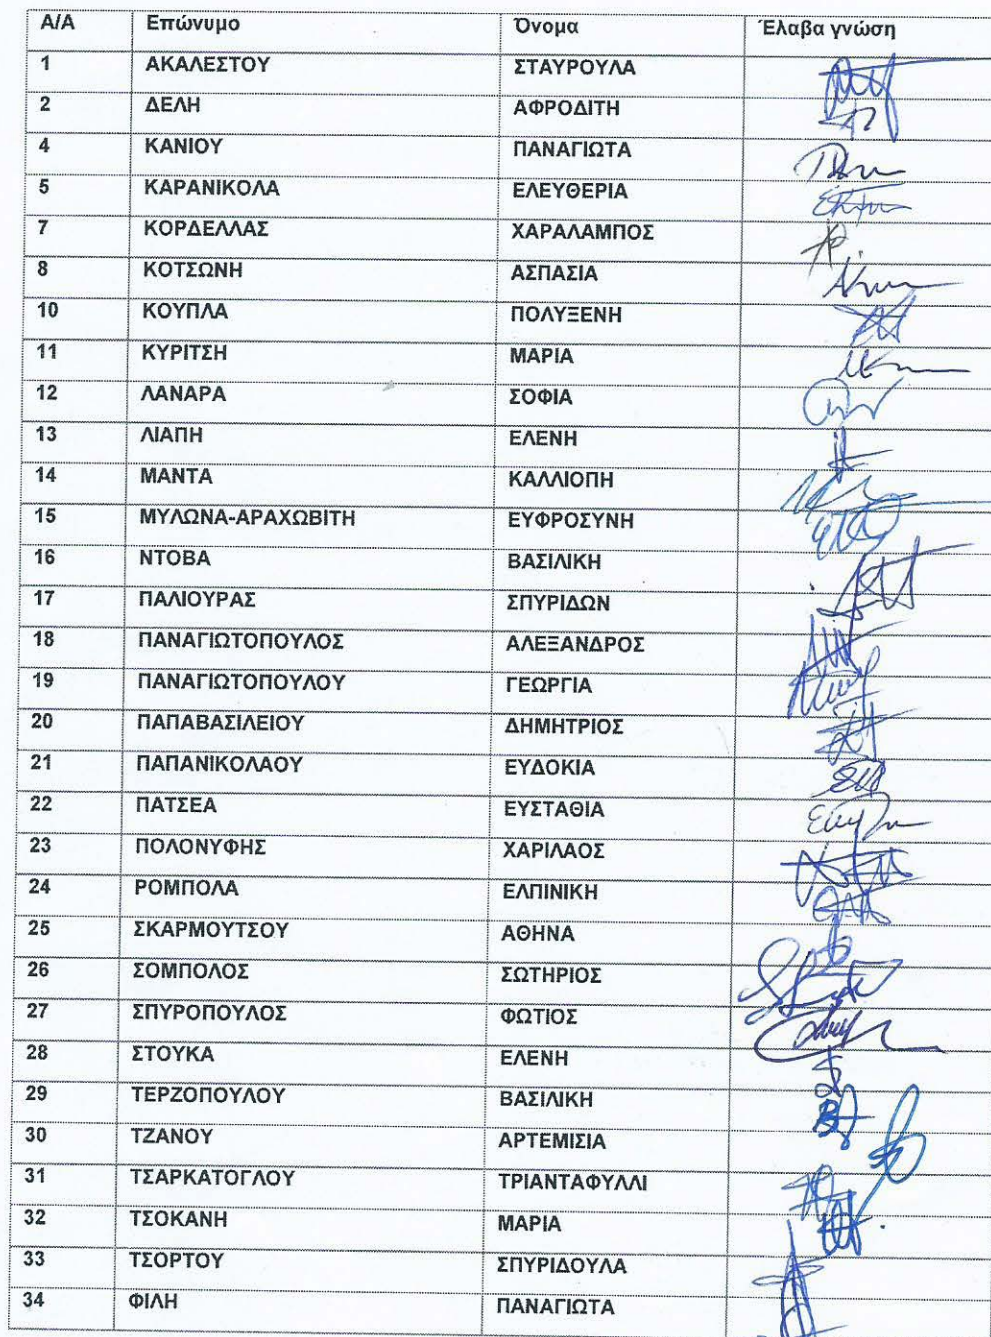 Α/Α Επώνυμο Όνομα Έλαβα γνώση
1 ΑΚΑΛΕΣΤΟΥ ΣΤΑΥΡΟΥΛΑ
2 ΔΕΛΗ ΑΦΡΟΔΙΤΗ
4 ΚΑΝΙΟΥ ΠΑΝΑΓΙΩΤΑ
5 ΚΑΡΑΝΙΚΟΛΑ ΕΛΕΥΘΕΡΙΑ
7 ΚΟΡΔΕΛΛΑΣ ΧΑΡΑΛΑΜΠΟΣ
8 ΚΟΤΣΩΝΗ ΑΣΠΑΣΙΑ
10 ΚΟΥΠΛΑ ΠΟΛΥΞΕΝΗ
11 ΚΥΡΙΤΣΗ ΜΑΡΙΑ
12 ΛΑΝΑΡΑ ΣΟΦΙΑ
13 ΛΙΑΠΗ ΕΛΕΝΗ
14 ΜΑΝΤΑ ΚΑΛΛΙΟΠΗ
15 ΜΥΛΩΝΑ-ΑΡΑΧΩΒΙΤΗ ΕΥΦΡΟΣΥΝΗ
16 ΝΤΟΒΑ ΒΑΣΙΛΙΚΗ
17 ΠΑΛΙΟΥΡΑΣ ΣΠΥΡΙΔΩΝ
18 ΠΑΝΑΓΙΩΤΟΠΟΥΛΟΣ ΑΛΕΞΑΝΔΡΟΣ
19 ΠΑΝΑΓΙΩΤΟΠΟΥΛΟΥ ΓΕΩΡΓΙΑ
20 ΠΑΠΑΒΑΣΙΛΕΙΟΥ ΔΗΜΗΤΡΙΟΣ
21 ΠΑΠΑΝΙΚΟΛΑΟΥ ΕΥΔΟΚΙΑ
22 ΠΑΤΣΕΑ ΕΥΣΤΑΘΙΑ
23 ΠΟΛΟΝΥΦΗΣ ΧΑΡΙΛΑΟΣ
24 ΡΟΜΠΟΛΑ ΕΛΠΙΝΙΚΗ
25 ΣΚΑΡΜΟΥΤΣΟΥ ΑΘΗΝΑ
26 ΣΟΜΠΟΛΟΣ ΣΩΤΗΡΙΟΣ
27 ΣΠΥΡΟΠΟΥΛΟΣ ΦΩΤΙΟΣ
28 ΣΤΟΥΚΑ ΕΛΕΝΗ
29 ΤΕΡΖΟΠΟΥΛΟΥ ΒΑΣΙΛΙΚΗ
30 ΤΖΑΝΟΥ ΑΡΤΕΜΙΣΙΑ
31 ΤΣΑΡΚΑΤΟΓΛΟΥ ΤΡΙΑΝΤΑΦΥΛΛΙ
32 ΤΣΟΚΑΝΗ ΜΑΡΙΑ
33 ΤΣΟΡΤΟΥ ΣΠΥΡΙΔΟΥΛΑ
34 ΦΙΛΗ ΠΑΝΑΓΙΩΤΑ